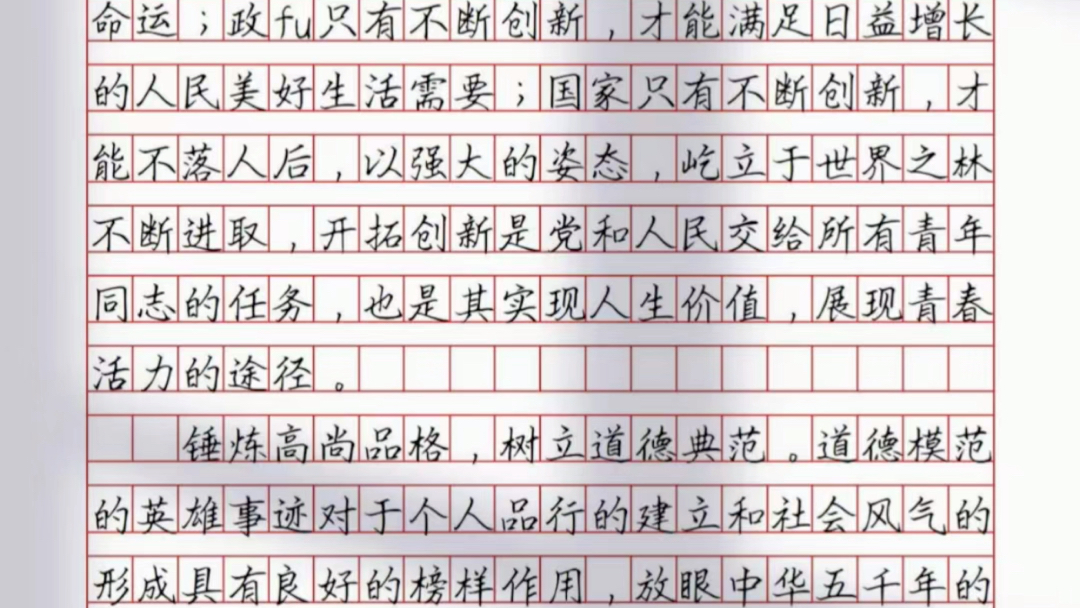 命运；政fu只有不断创新，才能满足日益增长
的人民美好生活需要；国家只有不断创新，才
能不落人后，以强大的姿态，屹立于世界之林
不断进取，开拓创新是党和人民交给所有青年
同志的任务，也是其实现人生价值，展现青春
活力的途径。
锤炼高尚品格，树立道德典范。道德模范
的英雄事迹对于个人品行的建立和社会风气的
形成具有良好的榜样作用，放眼中华五千年的